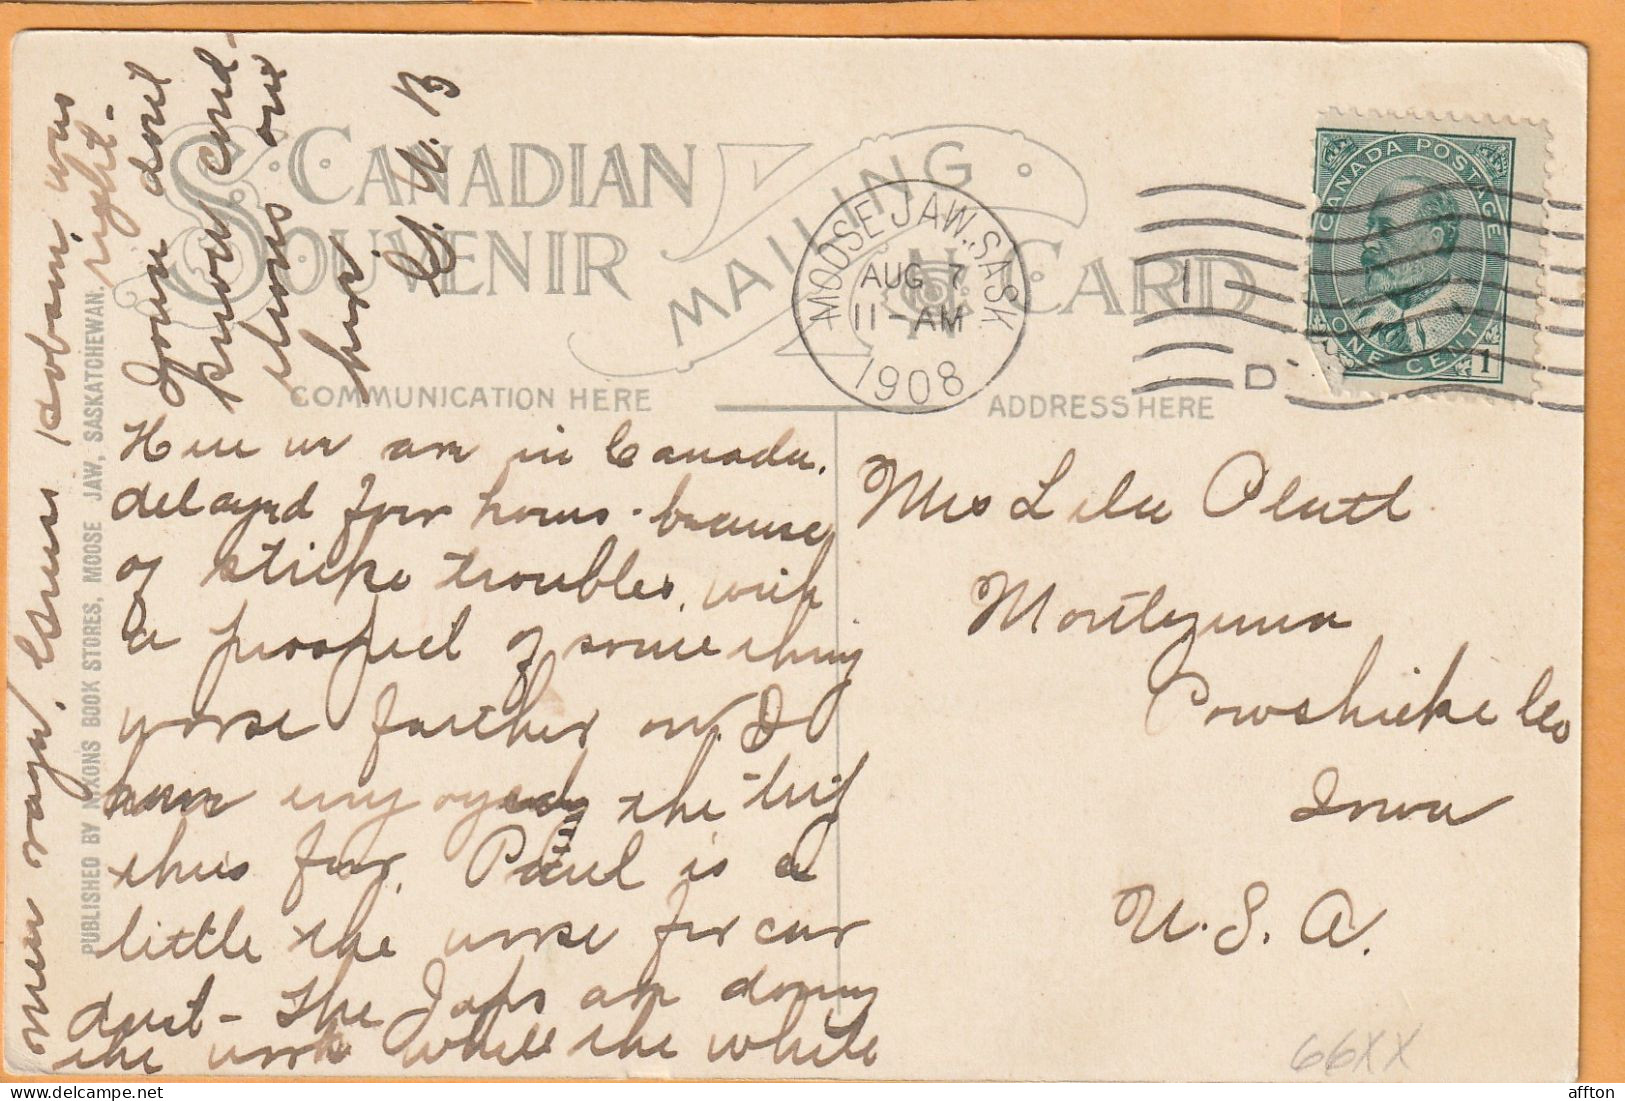 CANADIAN
SOUVENIR
MAILING
CARD
COMMUNICATION HERE
ADDRESS HERE
MOOSE JAW, SASK
AUG 7
11-AM
1908
1
D
CANADA POSTAGE
ONE CENT
1
PUBLISHED BY NIXONS BOOK STORES, MOOSE JAW, SASKATCHEWAN.
Here we are in Canada.
delayed four hours - because
of strike troubles, with
a prospect of something
worse farther on. I
have enjoyed the trip
thus far. Paul is a
little the worse for car
dust - The Japs are doing
the work while the white
men rage.
was
right -
You dont
know
one
here.
G. W. B
Mrs Lila Platt
Montezuma
Powshieke Co
Iowa
U. S. A.
66XX
affton